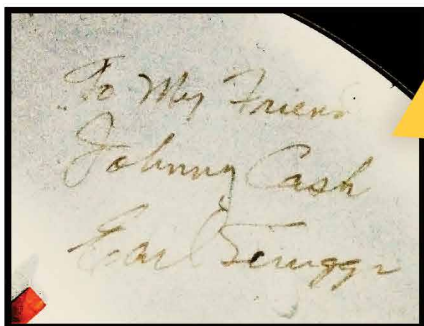 To My Friend
Johnny Cash
Earl Scruggs